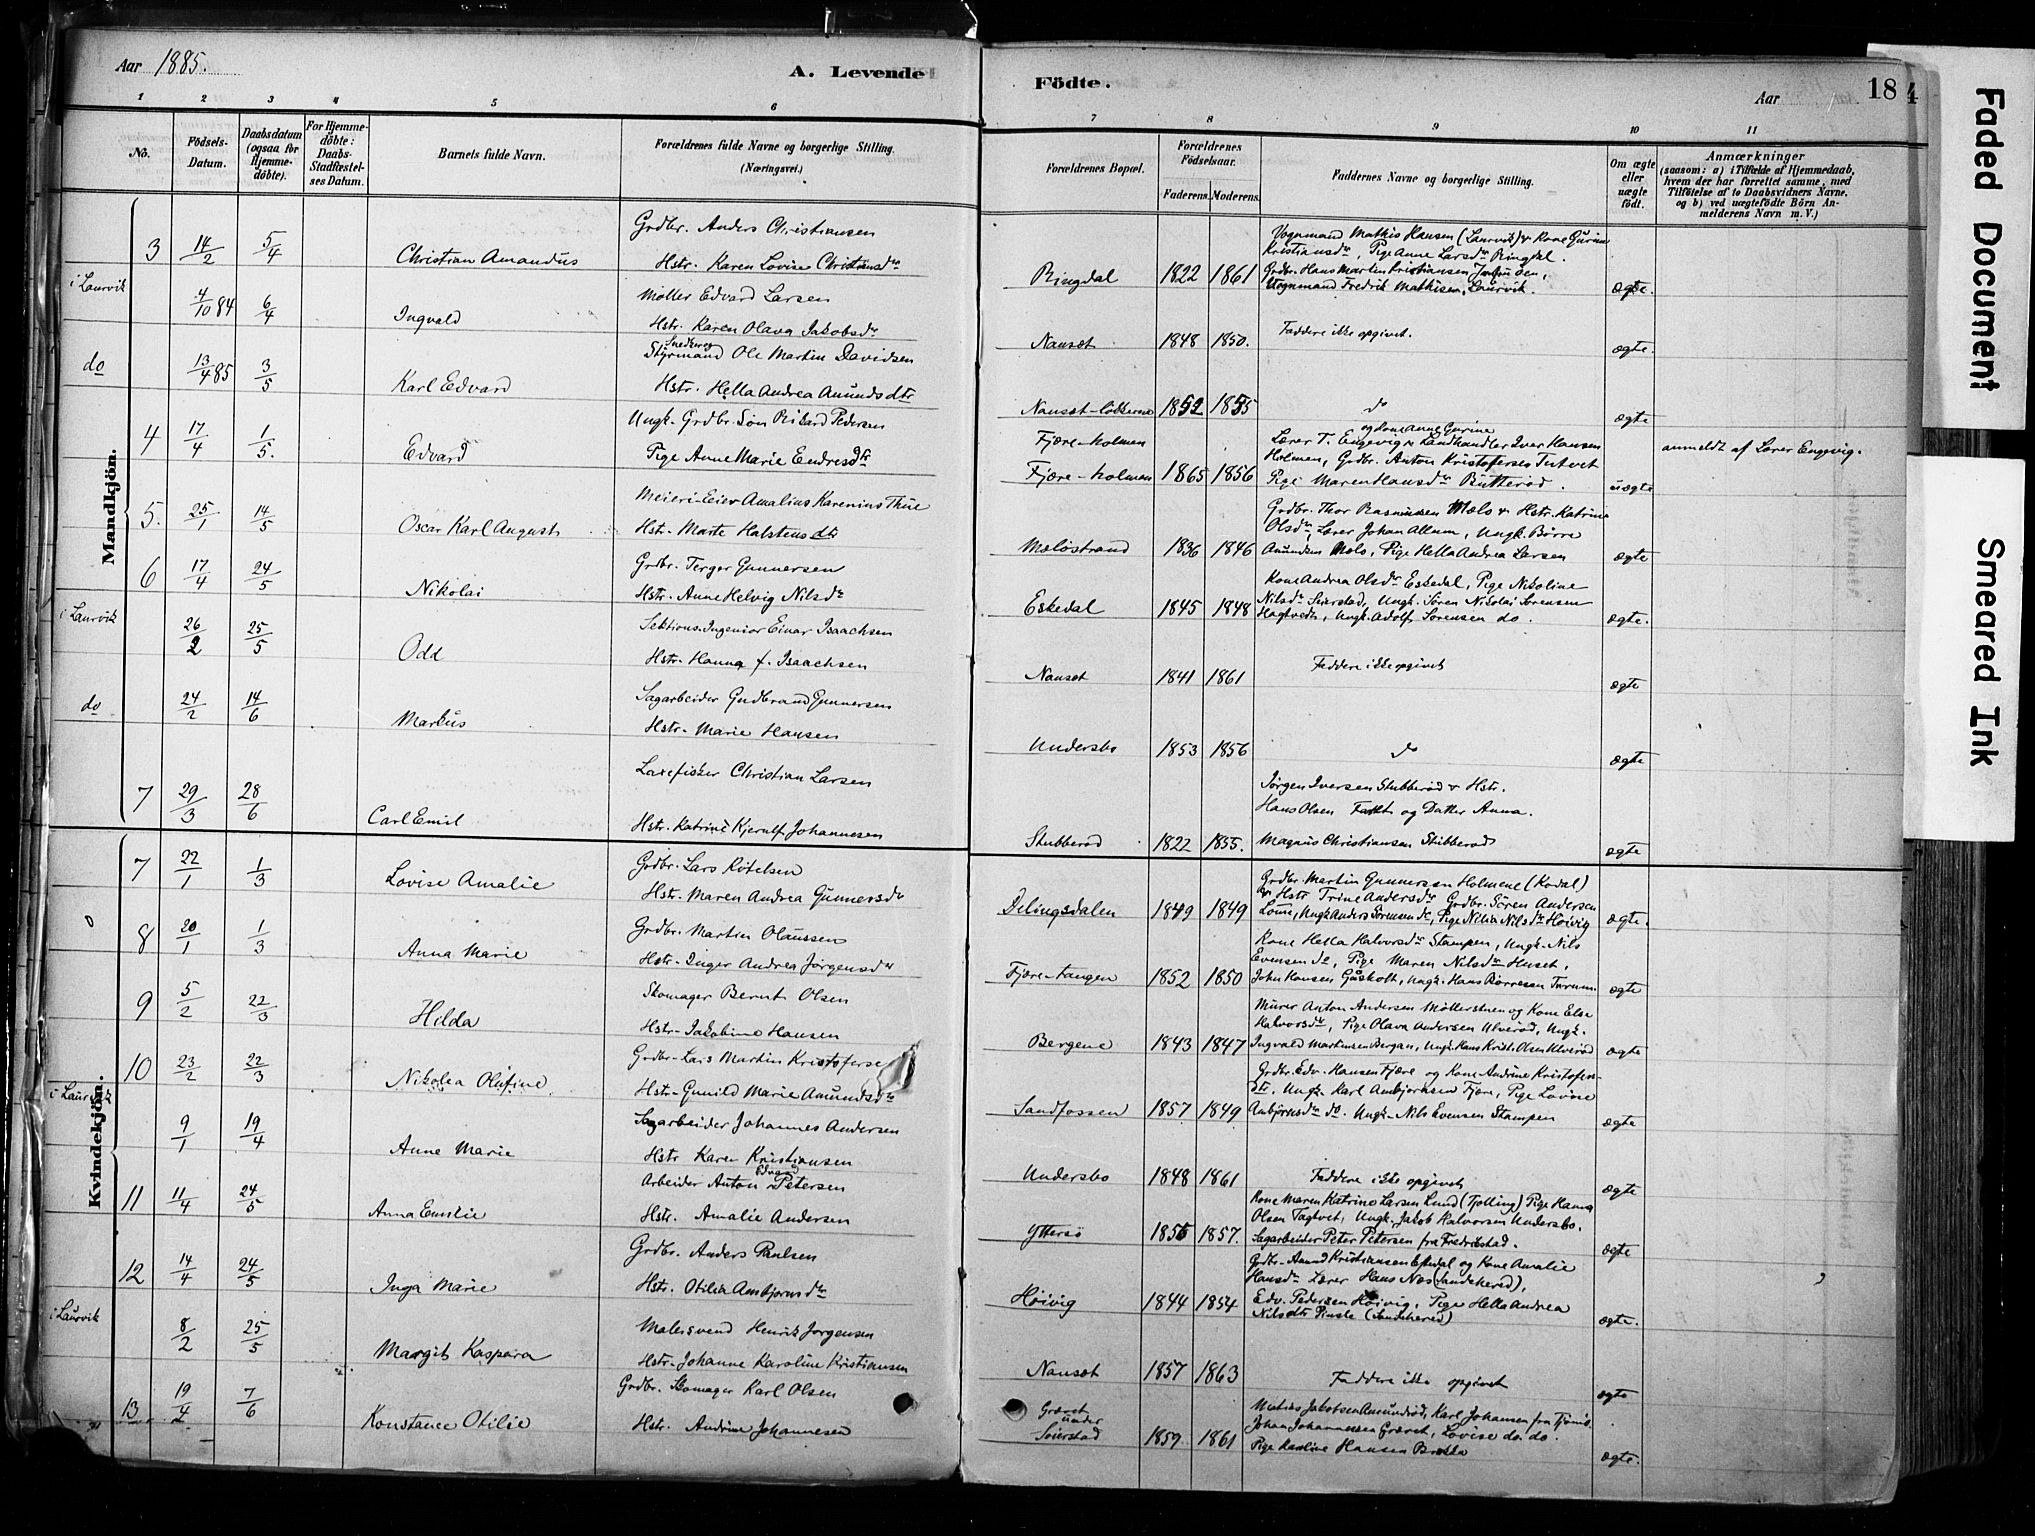 Aar 1885.
A. Levende
1 2 3 4 5 6
No.
Fødsels-Datum.
Daabsdatum (ogsaa for Hjemme-döbte).
For Hjemme-döbte: Daabs-Stadfæstel-ses Datum.
Barnets fulde Navn.
Forældrenes fulde Navne og borgerlige Stilling.
(Næringsvei.)
Mandkjön.
3 14/2 5/4 Christian Amandus
Grdbr. Anders Christiansen
Hstr. Karen Lovise Christiansdtr
i Laurvik 4/10 84 6/4 Ingvald
Møller Edvard Larsen
Hstr. Karen Olava Jakobsdtr
do 13/4 85 3/5 Karl Edvard
Snedker og
Styrmand Ole Martin Davidsen
Hstr. Hella Andrea Amundsdtr
4 17/4 1/5. Edvard
Ungk. Grdbr. Søn Rikard Pedersen
Pige Anne Marie Endresdtr
5. 25/1 14/5 Oscar Karl August
Meieri-Eier Amalius Karenius Thue
Hst. Marte Halstensdtr
6 17/4 24/5 Nikolai
Grdbr. Terger Gunnersen
Hstr. Anne Helvig Nilsdtr
i Laurvik 26/2 25/5 Odd
Sektions-Ingeniør Einar Isaachsen
Hstr. Hanna f. Isaachsen
do 24/2 14/6 Markus
Sagarbeider Gudbrand Gunnersen
Hstr. Marie Hansen
7 29/3 28/6 Carl Emil
Laxefisker Christian Larsen
Hstr. Katrine Kjerulf Johannesen
Kvindekjön.
7 22/1 1/3 Lovise Amalie
Grdbr. Lars
Hstr. Maren Andrea Gunnersdtr
8 20/1 1/3 Anna Marie
Grdbr. Martin Olaussen
Hstr. Inger Andrea Jørgensdtr
9 5/2 22/3 Hilda
Skomager Bernt Olsen
Hstr. Jakobine Hansen
10 23/2 22/3 Nikolea Olufine
Grdbr. Lars Martin Kristoferse
Hstr. Gunild Marie Amundsdtr
i Laurvik 9/1 19/4 Anne Marie
Sagarbeider Johannes Andersen
Hstr Karen Kristiansen
11 11/4 24/5 Anna Emilie
Edvard
Arbeider Anton Petersen
Hstr. Amalie Andersen
12 14/4 24/5 Inga Marie
Grdbr. Anders Paulsen
Hstr. Otilia Ambjørnsdtr
i Laurvik 8/2 25/5 Margit Kaspara
Malersvend Henrik Jørgensen
Hstr. Johanne Karoline Kristiansen
13 19/4 7/6 Konstance Otilie
Grdbr. Skomager Karl Olsen
Hstr. Andrine Johannesen
Födte.
Aar 184
7 8 9 10 11
Forældrenes Bopæl.
Forældrenes Födselsaar.
Faderens. Moderens.
Faddernes Navne og borgerlige Stilling.
Om ægte eller uægte födt.
Anmærkninger
(saasom: a) i Tilfælde af Hjemmedaab, hvem der har forrettet samme, med Tilföielse af to Daabsvidners Navne. og b) ved uægtefödte Börn An-melderens Navn m. V.)
Vognmand Mathis Hansen (Laurvik) & Kone Gurine
Kristiansdtr, Pige Anne Larsdtr Ringdal.
Ringdal 1822 1861 Grdbr. Hans Martin Kristiansen
Vognmand Fredrik Mathisen, Laurvik. ægte.
Nanset 1848 1850. Faddere ikke opgivet. ægte.
Nanset-løkkerne 1852 1855 do ægte
Fjære-holmen
og Kone Anne Gurine
Lærer T. Engevig & Landhandler Iver Hansen
anmeldt af Lærer Engevig.
Holmen, Grdbr. Anton Kristofersen Tutvet
Fjære-holmen 1865 1856 Pige Maren Hansdtr Butterød. uægte
Grdbr. Thor Rasmussen Mælø & Hstr. Katrine
Olsdtr, Lærer Johan Allum, Ungk. Børre
Meløstrand 1836 1846 Amundsen Mælø, Pige Hella Andrea Larsen ægte
Kone Andrea Olsdtr Eskedal, Pige Nikoline
Eskedal 1845 1848 Nilsdtr Seierstad, Ungk. Søren Nikolai Sørensen
Hagtvedt, Ungk. Adolf Sørensen do. ægte.
Nanset 1841 1861 Faddere ikke opgivet ægte
Undersbo 1853 1856 do ægte
Jørgen Iversen Stubberød & Hstr.
Hans Olsen og Datter Anna.
Stubberød 1822 1855. Magnus Christiansen Stubberød ægte
Grdbr. Martin Gunnersen Holmene (Kodal)
& Hstr Trine Andersdtr Grdbr. Søren Andersen
Delingsdalen 1849 1849 Ungk. Anders Sørensen do, Pige Nilia Nilsdtr Høivig ægte.
Kone Hella Halvorsdtr Stampen, Ungk. Nils
Evensen do, Pige Maren Nilsdtr Huset,
Fjære-tangen 1852 1850 John Hansen Gusholt, Ungk. Hans Børresen Tutvet. ægte
Murer Anton Andersen Møllerstuen og Kone Else
Halvorsdtr, Pige Olava Andersen Ulverød, Ungk.
Bergene 1843 1847 Ingvald Martinsen Bergan, Ungk. Hans Krist. Olsen Ulverød ægte
Grdbr. Edv. Hansen Fjære og Kone Andrine Kristofers-
dtr. Ungk. Karl Ambjørnsen Fjære, Pige Lovise
Sandfossen 1857 1849 Ambjørnsdtr do. Ungk. Nils Evensen Stampen ægte
Undersbo 1848 1861 Faddere ikke opgivet ægte
Kone Maren Katrine Larsen Lund (Tjølling) Pige Hanna
Olsen Tagtvet, Ungk. Jakob Halvorsen Undersbo.
Yttersø 1856 1857. Sagarbeider Peter Petersen fra Fredrikstad. ægte
Grdbr. Amund Kristiansen Eskedal og Kone Amalie
Hansdtr Lærer Hans Næs (Sandehered),
Høivig 1844 1854 Edv. Pedersen Høivig, Pige Hella Andrea
Nilsdtr (Sandehered) ægte.
Nanset 1857 1863 Faddere ikke opgivet ægte
Grævet under Seierstad 1859. 1861
Matias Jakobsen Amundrød, Karl Johansen fra Tjømø.
Johan Johannessen Grævet, Lovise do. do.
Pige Karline Hansen Brekke ægte.
Faded Document
Smeared Ink